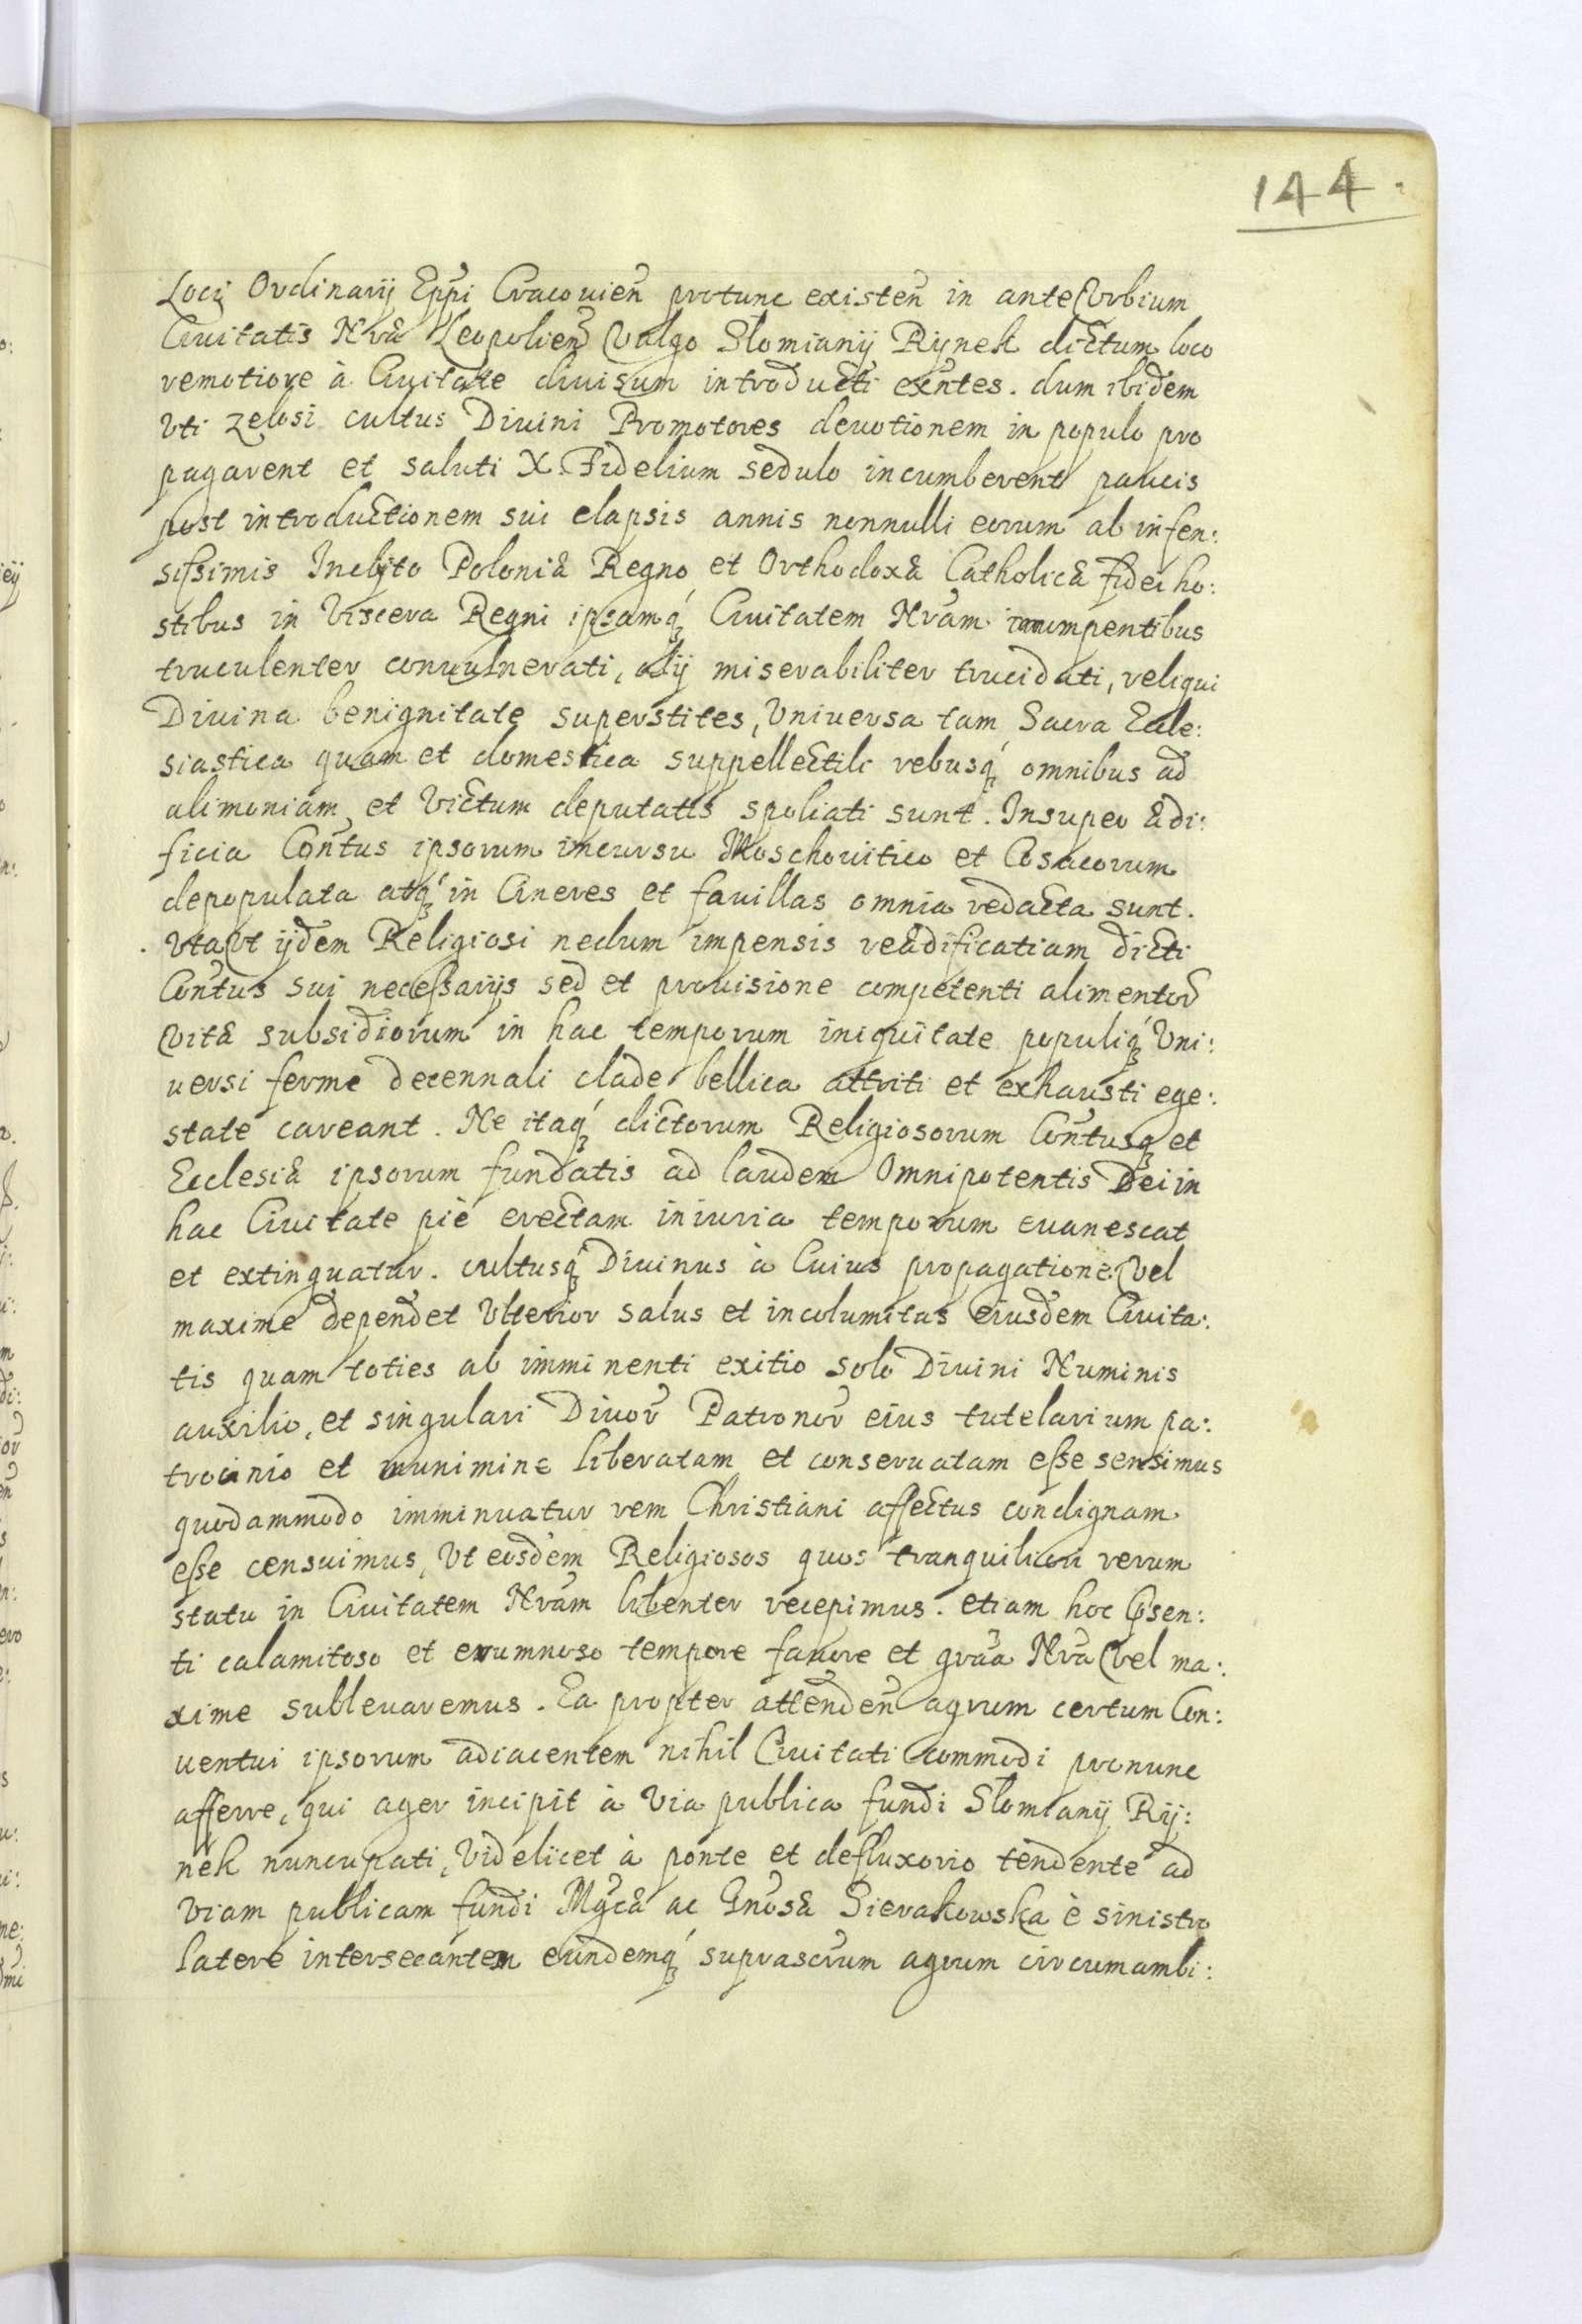 144.
Loci Ordinarij Eppi Cracouien protunc existen in ante Vrbium
Ciuitatis Nræ Leopolien Vulgo Slomianÿ Rÿnek dictum loco
remotiore à Ciuitate diuisum introducti exntes. dum ibidem
Vti zelosi cultus Diuini Promotores deuotionem in populo pro
pagarent et saluti X. Fidelium sedulo incumberent paucis
post introductionem sui elapsis annis nonnulli eorum ab infen:
sissimis Inclÿto Poloniæ Regno, et Orthodoxæ Catholicæ fidei ho:
stibus in Viscera Regni ipsamq́ Ciuitatem Nram irrumpentibus
truculenter conuulnerati, alÿ miserabiliter trucidati, reliqui
Diuina benignitate superstites, Vniuersa tam Sacra Eccle:
siastica quam et domestica suppellectili rebusq́ omnibus ad
alimoniam et Victum deputatis spoliati sunt. Insuper ædi:
ficia Contus ipsorum incursu Moschouitico et Cosacorum
depopulata atq́ in Cineres et fauillas omnia redacta sunt.
Vta Vt ÿdem Religiosi nedum impensis reædificatiam dicti
Contus sui necessarÿs sed et prouisione competenti alimentor
Vitæ subsidiorum in hac temporum iniquitate populiq́ Vni:
uersi ferme decennali clade bellica attriti et exhausti ege:
state careant. Ne itaq́ dictorum Religiosorum Contusq et
Ecclesiæ ipsorum fundatis ad laudem Omnipotentis Dei in
hac Ciuitate piè erectam iniuria temporum euanescat
et extinguatur. cultusq́ Diuinus à Cuius propagatione Vel
maxime dependet Vlterior salus et incolumitas eiusdem Ciuita:
tis quam toties ab imminenti exitio solo Diuini Numinis
auxilio, et singulari Diuor Patronor eius tutelarium pa:
trocinio et munimine liberatam et conseruatam esse sensimus
quodammodo imminuatur rem Christiani affectus condignam
esse censuimus, Vt eosdem Religiosos quos tranquiliori rerum
statu in Ciuitatem Nram libenter recepimus. etiam hoc Psen:
ti calamitoso et erumnoso tempore fauore et graa Nra Vel ma:
xime subleuaremus. Ea propter attenden agrum certum Con:
uentui ipsorum adiacentem nihil Ciuitati commodi pronunc
afferre, qui ager incipit à Via publica fundi Slomianÿ Rÿ:
nek nuncupati, Videlicet à ponte et defluxorio tendente ad
Viam publicam fundi Mgcæ ac Gnosæ Sierakowska è sinistro
latere intersecantem eundemq́ suprascrum agrum circumambi: